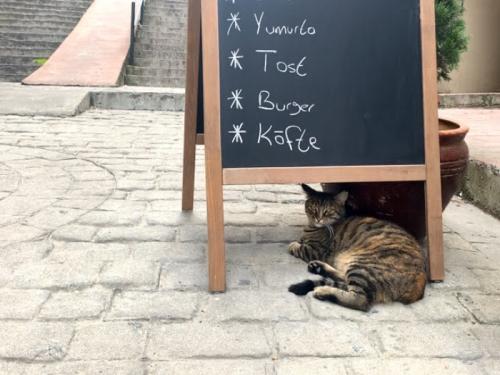 * Yumurta
* Tost
* Burger
* Köfte